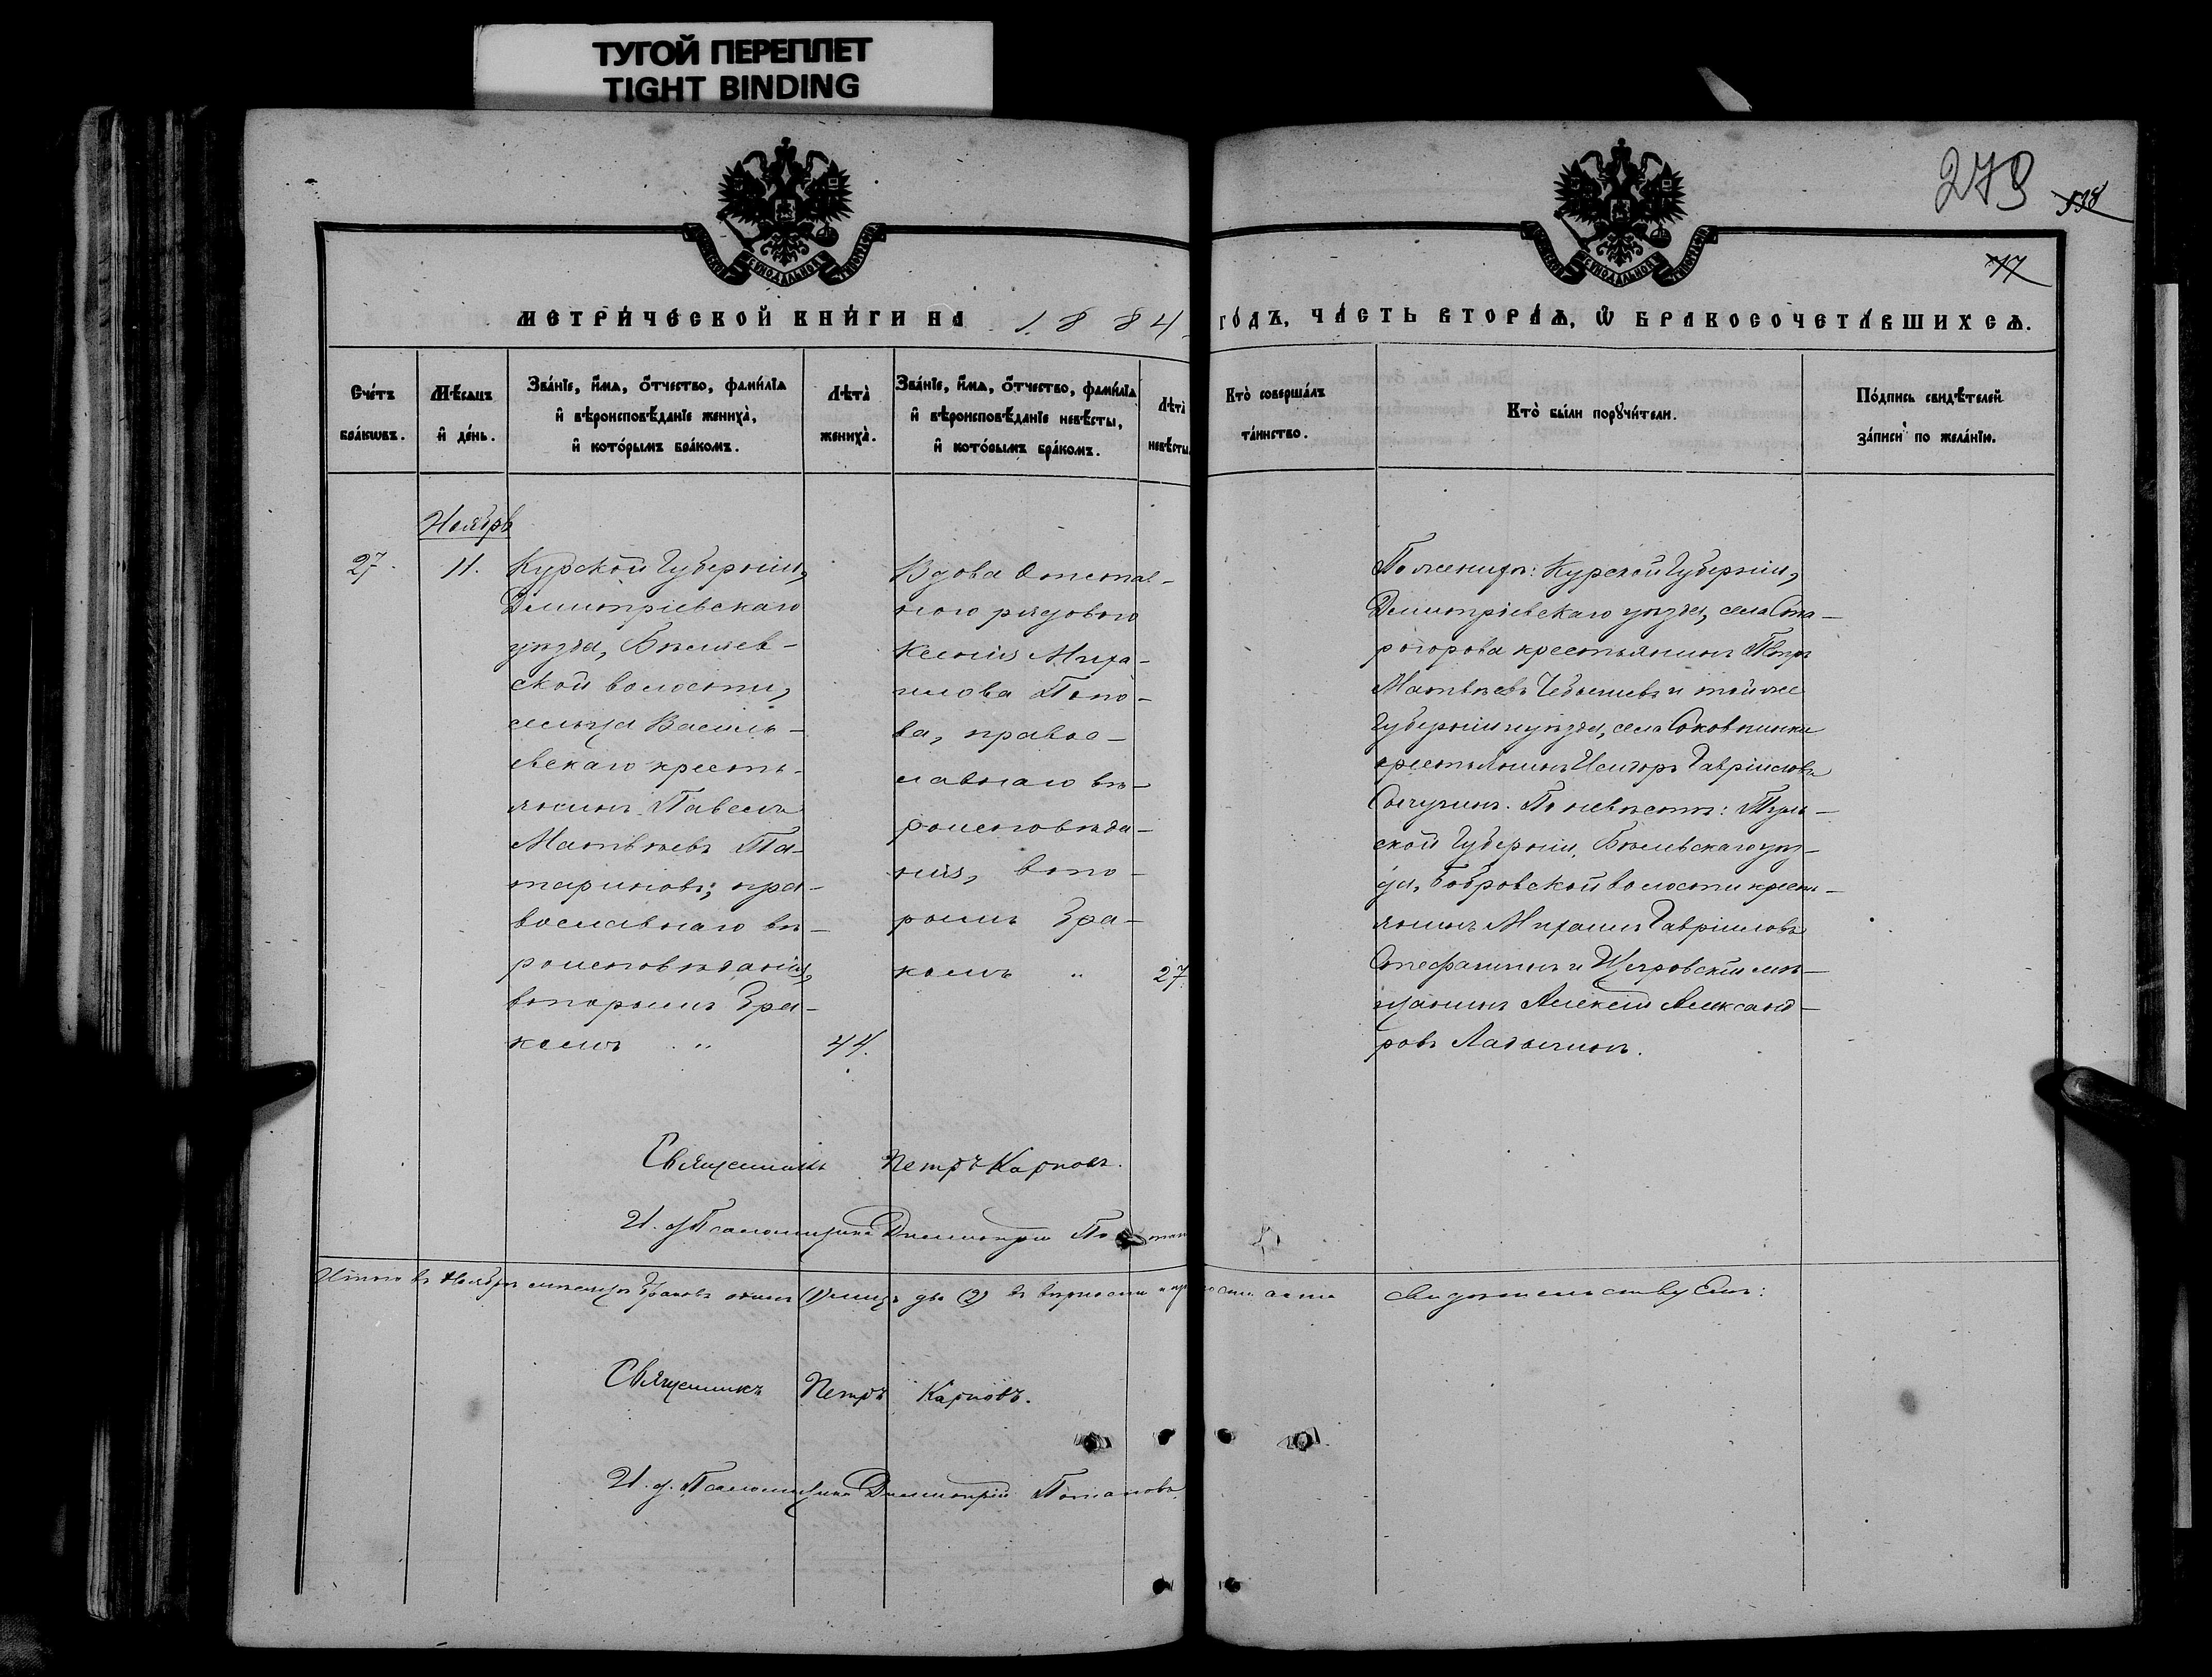 ТУГОЙ ПЕРЕПЛЕТ
TIGHT BINDING
279
17
МЕТРИ́ЧЕСКОЙ КНИ́ГИ НА 1884
ГО́ДЪ, ЧА́СТЬ ВТОРА́Ѧ, Ѡ҆ БРАКОСОЧЕТА́ВШИХСѦ.
Сче́тъ
бра́кѡвъ.
Мѣ́сѧцъ
и҆ де́нь.
Зва́нїе, и҆́мѧ, о҆́тчество, фами́лїѧ
и҆ вѣроисповѣ́данїе жениха̀,
и҆ кото́рымъ бра́комъ.
Лѣта̀
жениха̀.
Зва́нїе, и҆́мѧ, о҆́тчество, фами́лїѧ
и҆ вѣроисповѣ́данїе невѣ́сты,
и҆ кото́рымъ бра́комъ.
Лѣта̀
невѣ́сты
Кто̀ соверша́лъ
та́инство.
Кто̀ бы́ли порꙋчи́тели.
По́дпись свидѣ́телей
за́писи по жела́нїю.
Ноябрь
27.
11.
Курской Губерніи,
Дмитріевскаго
уѣзда, Бѣляев-
ской волости,
сельца Василь-
евскаго кресть-
янинъ Павелъ
Матвѣевъ Па-
тариновъ; пра-
вославнаго вѣ-
роисповѣданія,
вторымъ бра-
комъ "
44.
Вдова Отстав-
ного рядового
Ксенія Миха-
илова Попо-
ва, правос-
лавнаго вѣ-
роисповѣда-
нія, вто-
рымъ бра-
комъ "
27
По женихѣ: Курской Губерніи,
Дмитріевскаго уѣзда, села Ста-
рогорова крестьянинъ Петръ
Матвѣевъ и той же
Губерніи и уѣзда, села Соковнинки
крестьянинъ Гавріиловъ
Сычугинъ. По невѣстѣ: Туль-
ской Губерніи, Бѣлевскаго уѣз-
да, Бобровской волости кресть-
янинъ Михаилъ Гавріиловъ
Стефанинъ и Щигровскій мѣ-
щанинъ Алексѣй Александ-
ровъ Ладыгинъ.
Священникъ Петръ Карповъ.
И. д. Псаломщика Димитрій
Итого въ Ноябрѣ мѣсяцѣ браковъ одинъ (1) лицъ два (2) въ вѣрности акта свидѣтельствуемъ:
Священникъ Петръ Карповъ.
И. д. Псаломщика Димитрій Потаповъ